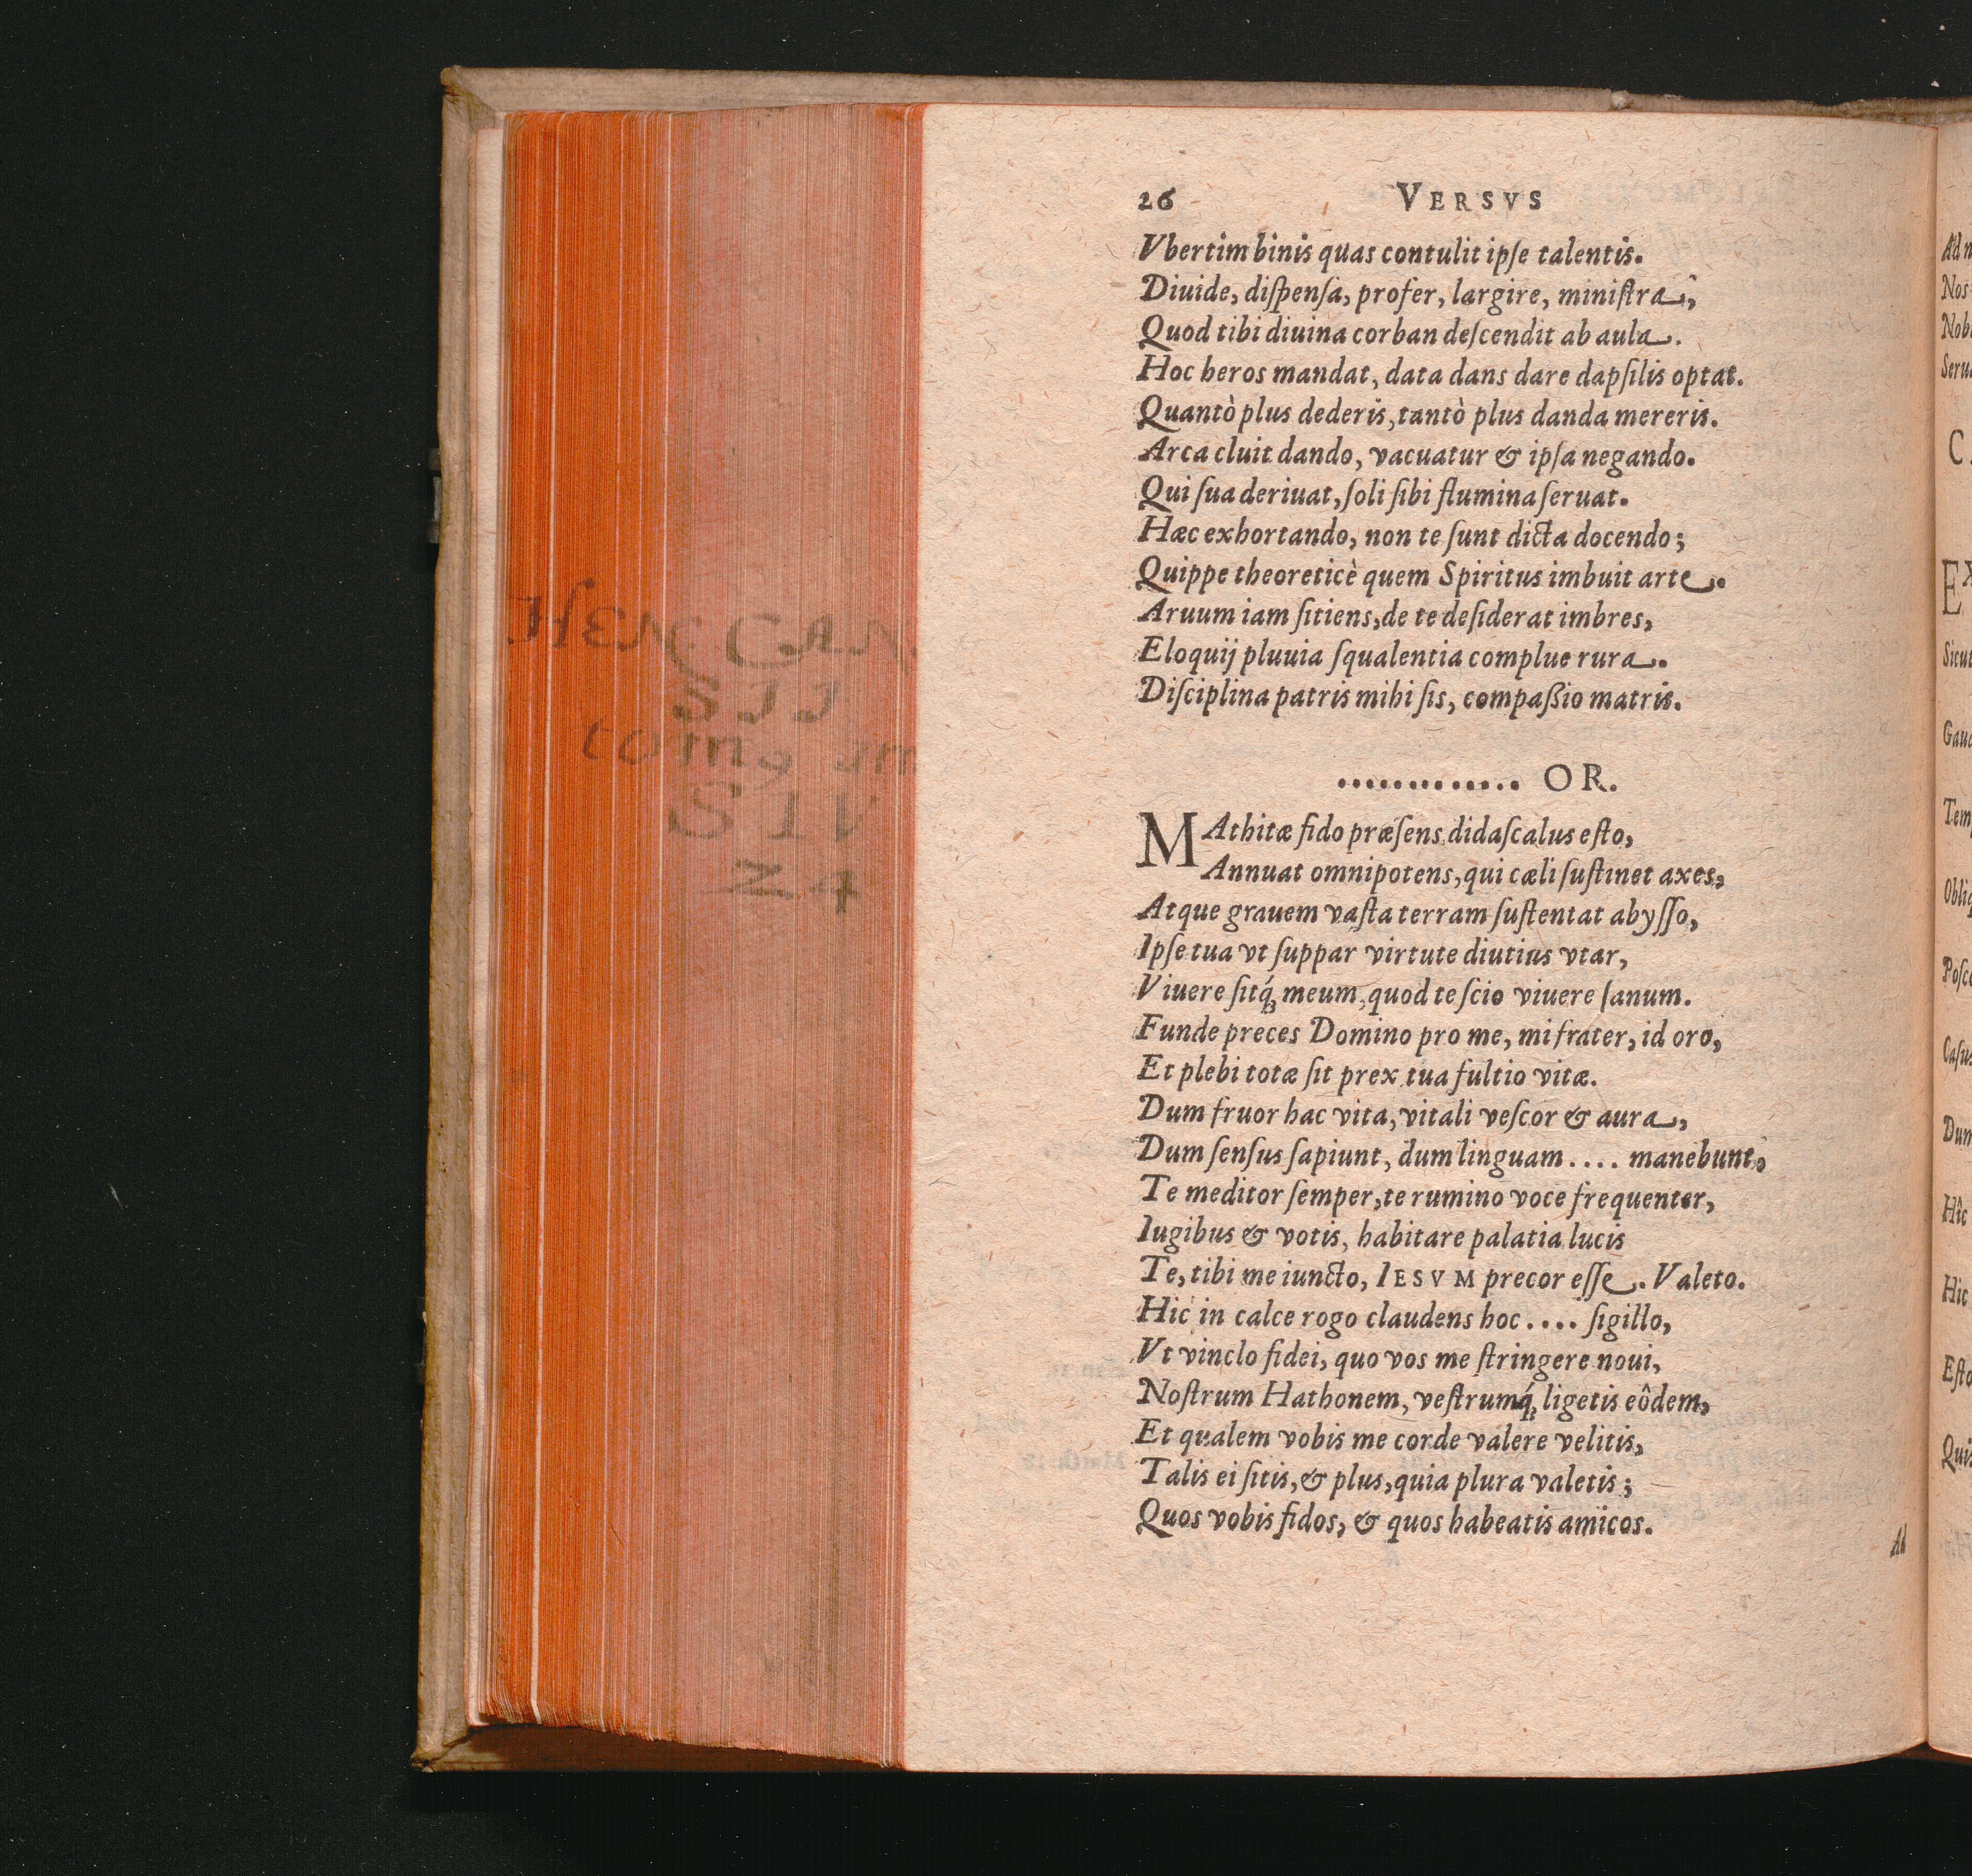 26 VERSVS
Vbertim binis quas contulit ipſe talentis.
Diuide, diſpenſa, profer, largire, miniſtra,
Quod tibi diuina corban deſcendit ab aula.
Hoc heros mandat, data dans dare dapſilis optat.
Quantò plus dederis, tantò plus danda mereris.
Arca cluit dando, vacuatur & ipſa negando.
Qui ſua deriuat, ſoli ſibi flumina ſeruat.
Hæc exhortando, non te ſunt dicta docendo;
Quippe theoreticè quem Spiritus imbuit arte.
Aruum iam ſitiens, de te deſiderat imbres,
Eloquij pluuia ſqualentia complue rura.
Diſciplina patris mihi ſis, compaßio matris.
............. OR.
MAthitæ fido præſens didaſcalus eſto,
Annuat omnipotens, qui cæli ſuſtinet axes,
Atque grauem vaſta terram ſuſtentat abyſſo,
Ipſe tua vt ſuppar virtute diutius vtar,
Viuere ſitq́; meum, quod te ſcio viuere ſanum.
Funde preces Domino pro me, mi frater, id oro,
Et plebi totæ ſit prex tua fultio vitæ.
Dum fruor hac vita, vitali veſcor & aura,
Dum ſenſus ſapiunt, dum linguam .... manebunt,
Te meditor ſemper, te rumino voce frequenter,
Iugibus & votis, habitare palatia lucis
Te, tibi me iuncto, IESVM precor eſſe. Valeto.
Hic in calce rogo claudens hoc .... ſigillo,
Vt vinclo fidei, quo vos me ſtringere noui,
Noſtrum Hathonem, veſtrumq́; ligetis eôdem,
Et qualem vobis me corde valere velitis,
Talis ei ſitis, & plus, quia plura valetis;
Quos vobis fidos, & quos habeatis amicos.
Ad
HEN CAN
SII
tomg
24
Ad
Nos
Nob
Seru
C.
EX
Sicut
Gaud
Temp
Obliq
Poſc
Caſus
Dum
Hîc
Hic
Eſto
Quis